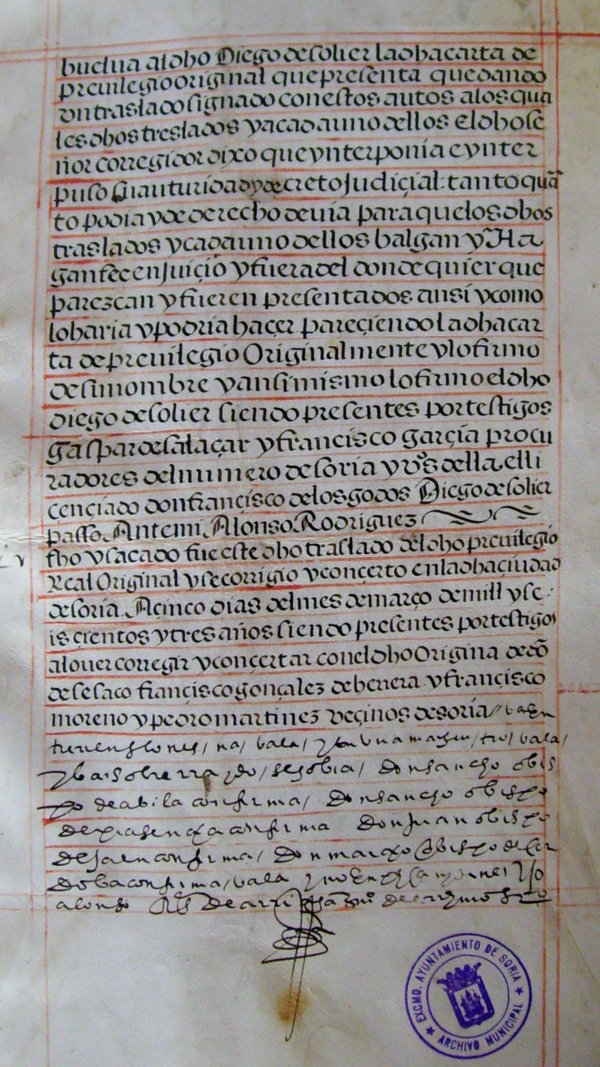 buelua al dho Diego de solier la dha carta de
preuilegio Original que presenta quedando
vn traslado signado con estos autos a los qua
les dhos treslados y a cada uno dellos el dho se
ñor corregidor dixo que ynterponia e ynter
puso su auturidad y decreto Judiçial: tanto quā
to podia y de derecho deuia para que los dhos
traslados y cada uno dellos balgan y Ha
gan fee en Juiçio y fuera del donde quier que
parezcan y fueren presentados ansi y como
lo haria y podria haçer pareçiendo la dha car
ta de preuilegio Originalmente y lo firmo
de su nombre y ansimismo lo firmo el dho
Diego de solier siendo presentes por testigos
gaspar de salaçar y françisco garçia procu
radores del numero de soria y vºs della el li
çençiado don françisco de los godos Diego de solier
passo Antemi Alonso Rodriguez
fho y sacado fue este dho traslado del dho preuilegio
Real Original y se corrigio y conçerto en la dha çiudad
de soria. A çinco dias del mes de março de mill y se-
is çientos y tres años siendo presentes por testigos
a lo uer corregir y conçertar con el dho Origina de dō
de se saco françisco gonçalez de herrera y françisco
moreno y pedro martinez veçinos de soria /
/ na / vala / vala /
don sancho obis
po de abila confirma / don sancho obispo
de plasençia confirma don Juan obispo
de Jaen confirma / don março obispo de cor
doba confirma / vala
alonso
EXCMO. AYUNTAMIENTO DE SORIA
★ ARCHIVO MUNICIPAL ★